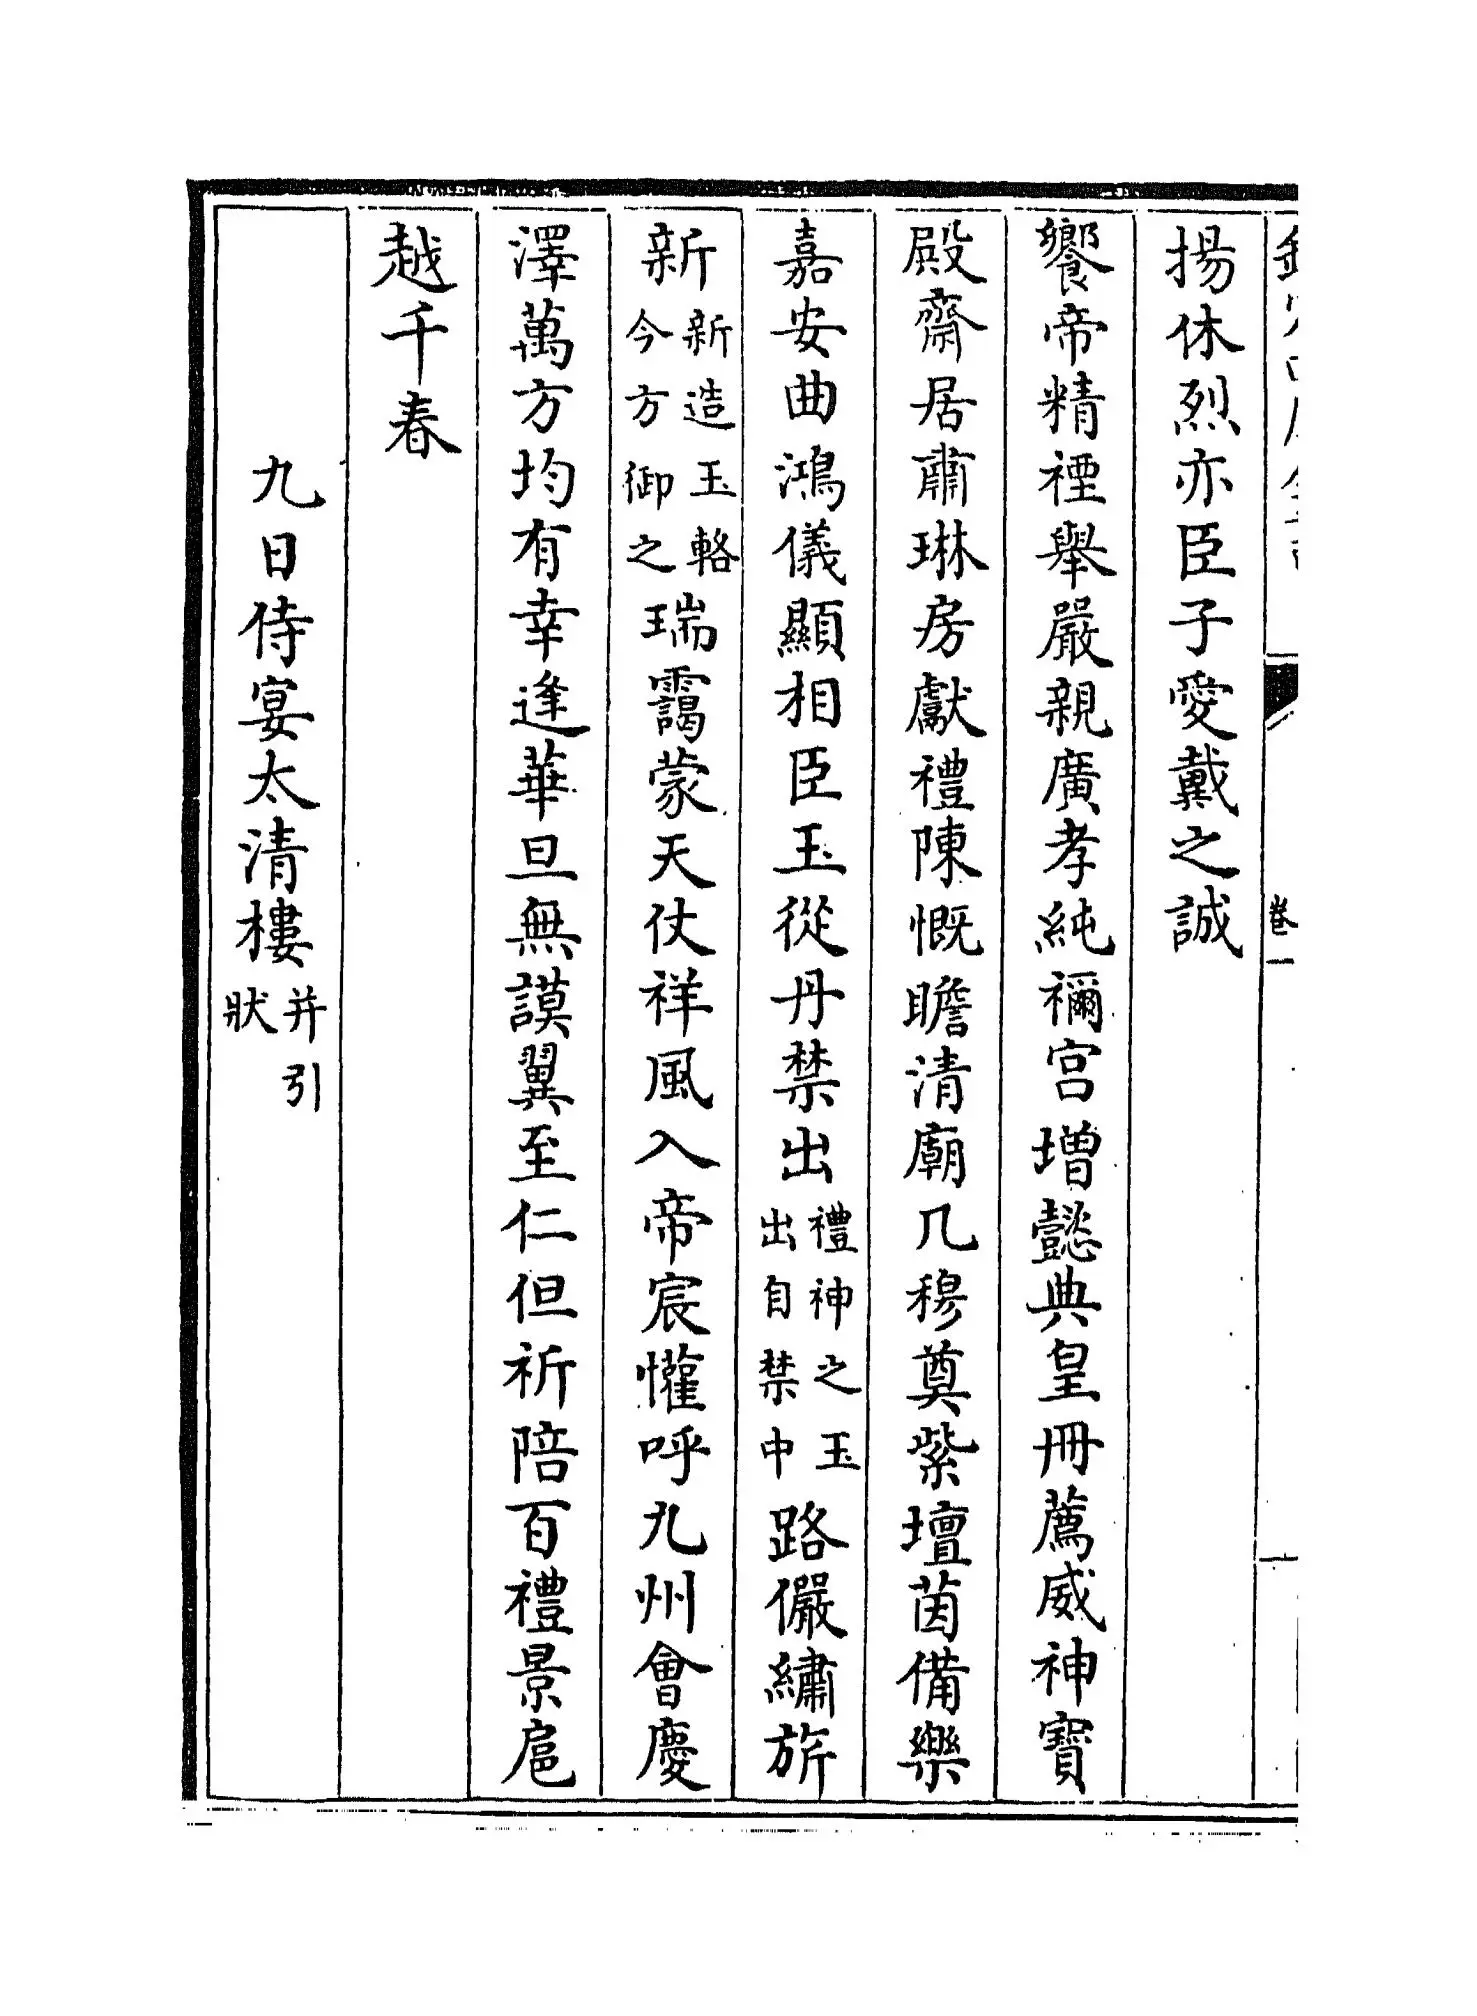 揚休烈亦臣子愛戴之誠
饗帝精禋舉嚴親廣孝純禰宮增懿典皇冊薦威神寶
殿齋居肅琳房獻禮陳慨瞻清廟几穆奠紫壇茵備樂
嘉安曲鴻儀顯相臣玉從丹禁出禮神之玉出自禁中路儼繡旂
新新造玉輅今方御之瑞靄蒙天仗祥風入帝宸懽呼九州會慶
澤萬方均有幸逢華旦無謨翼至仁但祈陪百禮景扈
越千春
九日侍宴太清樓并引狀
卷一